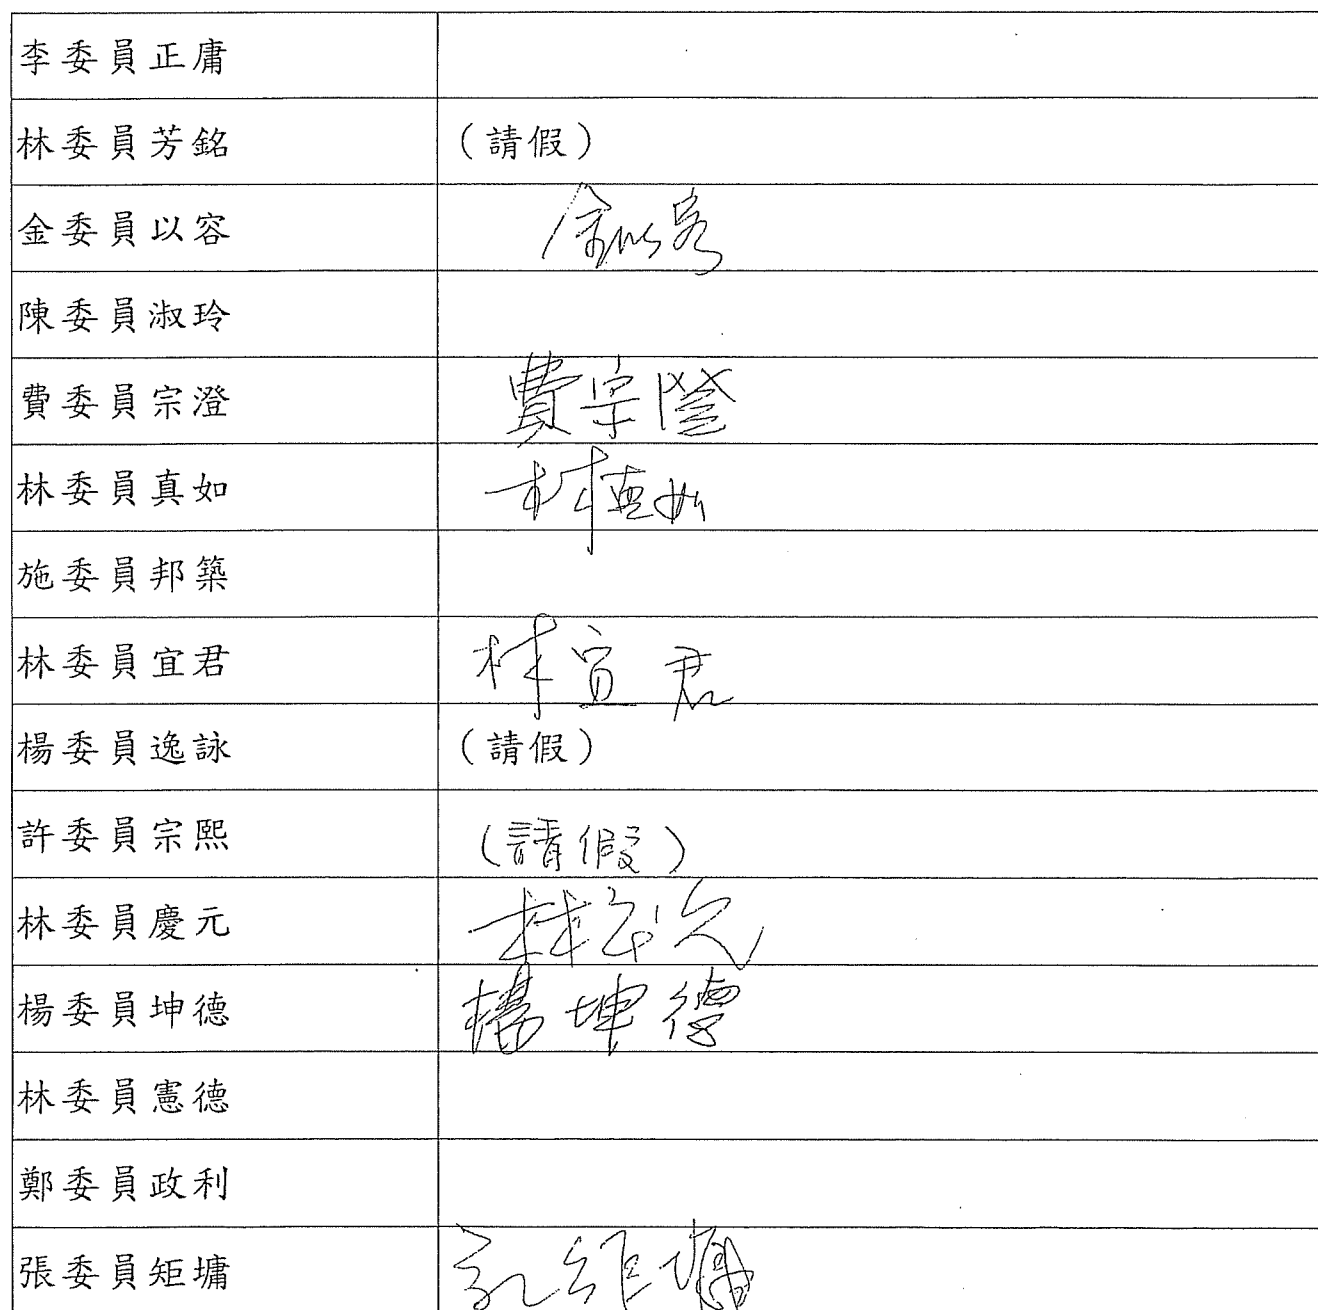 李委員正庸
林委員芳銘 (請假)
金委員以容 金以容
陳委員淑玲
費委員宗澄 費宗澄
林委員真如 林真如
施委員邦築
林委員宜君 林宜君
楊委員逸詠 (請假)
許委員宗熙 (請假)
林委員慶元 林
楊委員坤德 楊坤德
林委員憲德
鄭委員政利
張委員矩墉